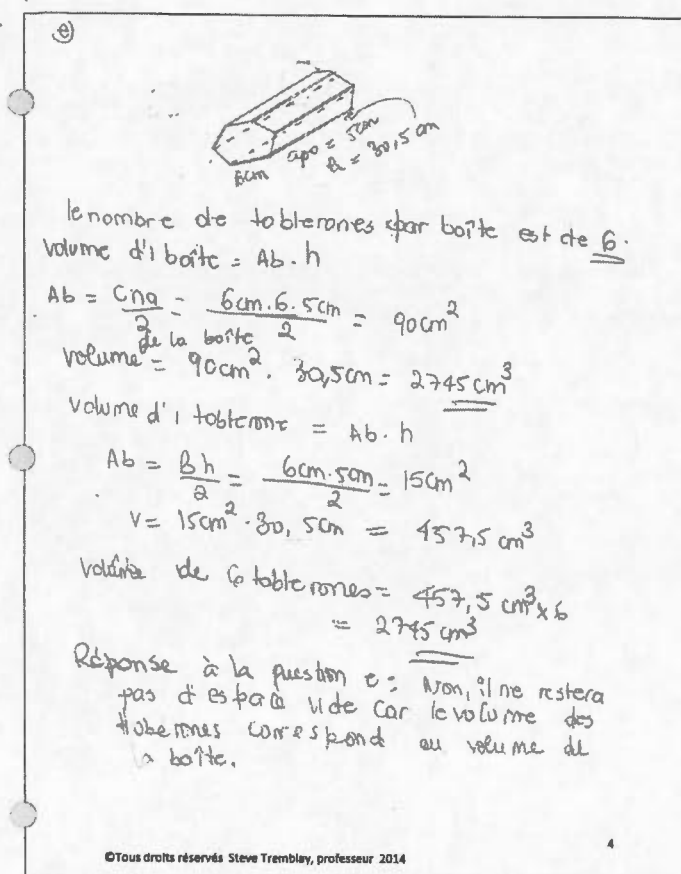 e)
6cm
apo = 5cm
h = 30,5 cm
le nombre de toblerones par boîte est de 6.
volume d'1 boîte = Ab · h
Ab = Cna/2 = 6cm.6.5cm/2 = 90cm²
de la boîte
volume = 90cm² · 30,5cm = 2745 cm³
volume d'1 toblerone = Ab · h
Ab = Bh/2 = 6cm.5cm/2 = 15cm²
V = 15cm² · 30,5cm = 457,5 cm³
volume de 6 toblerones = 457,5 cm³ x 6
= 2745 cm³
Réponse à la question e : Non, il ne restera
pas d'espace vide car le volume des
toblerones correspond au volume de
la boîte.
4
©Tous droits réservés Steve Tremblay, professeur 2014